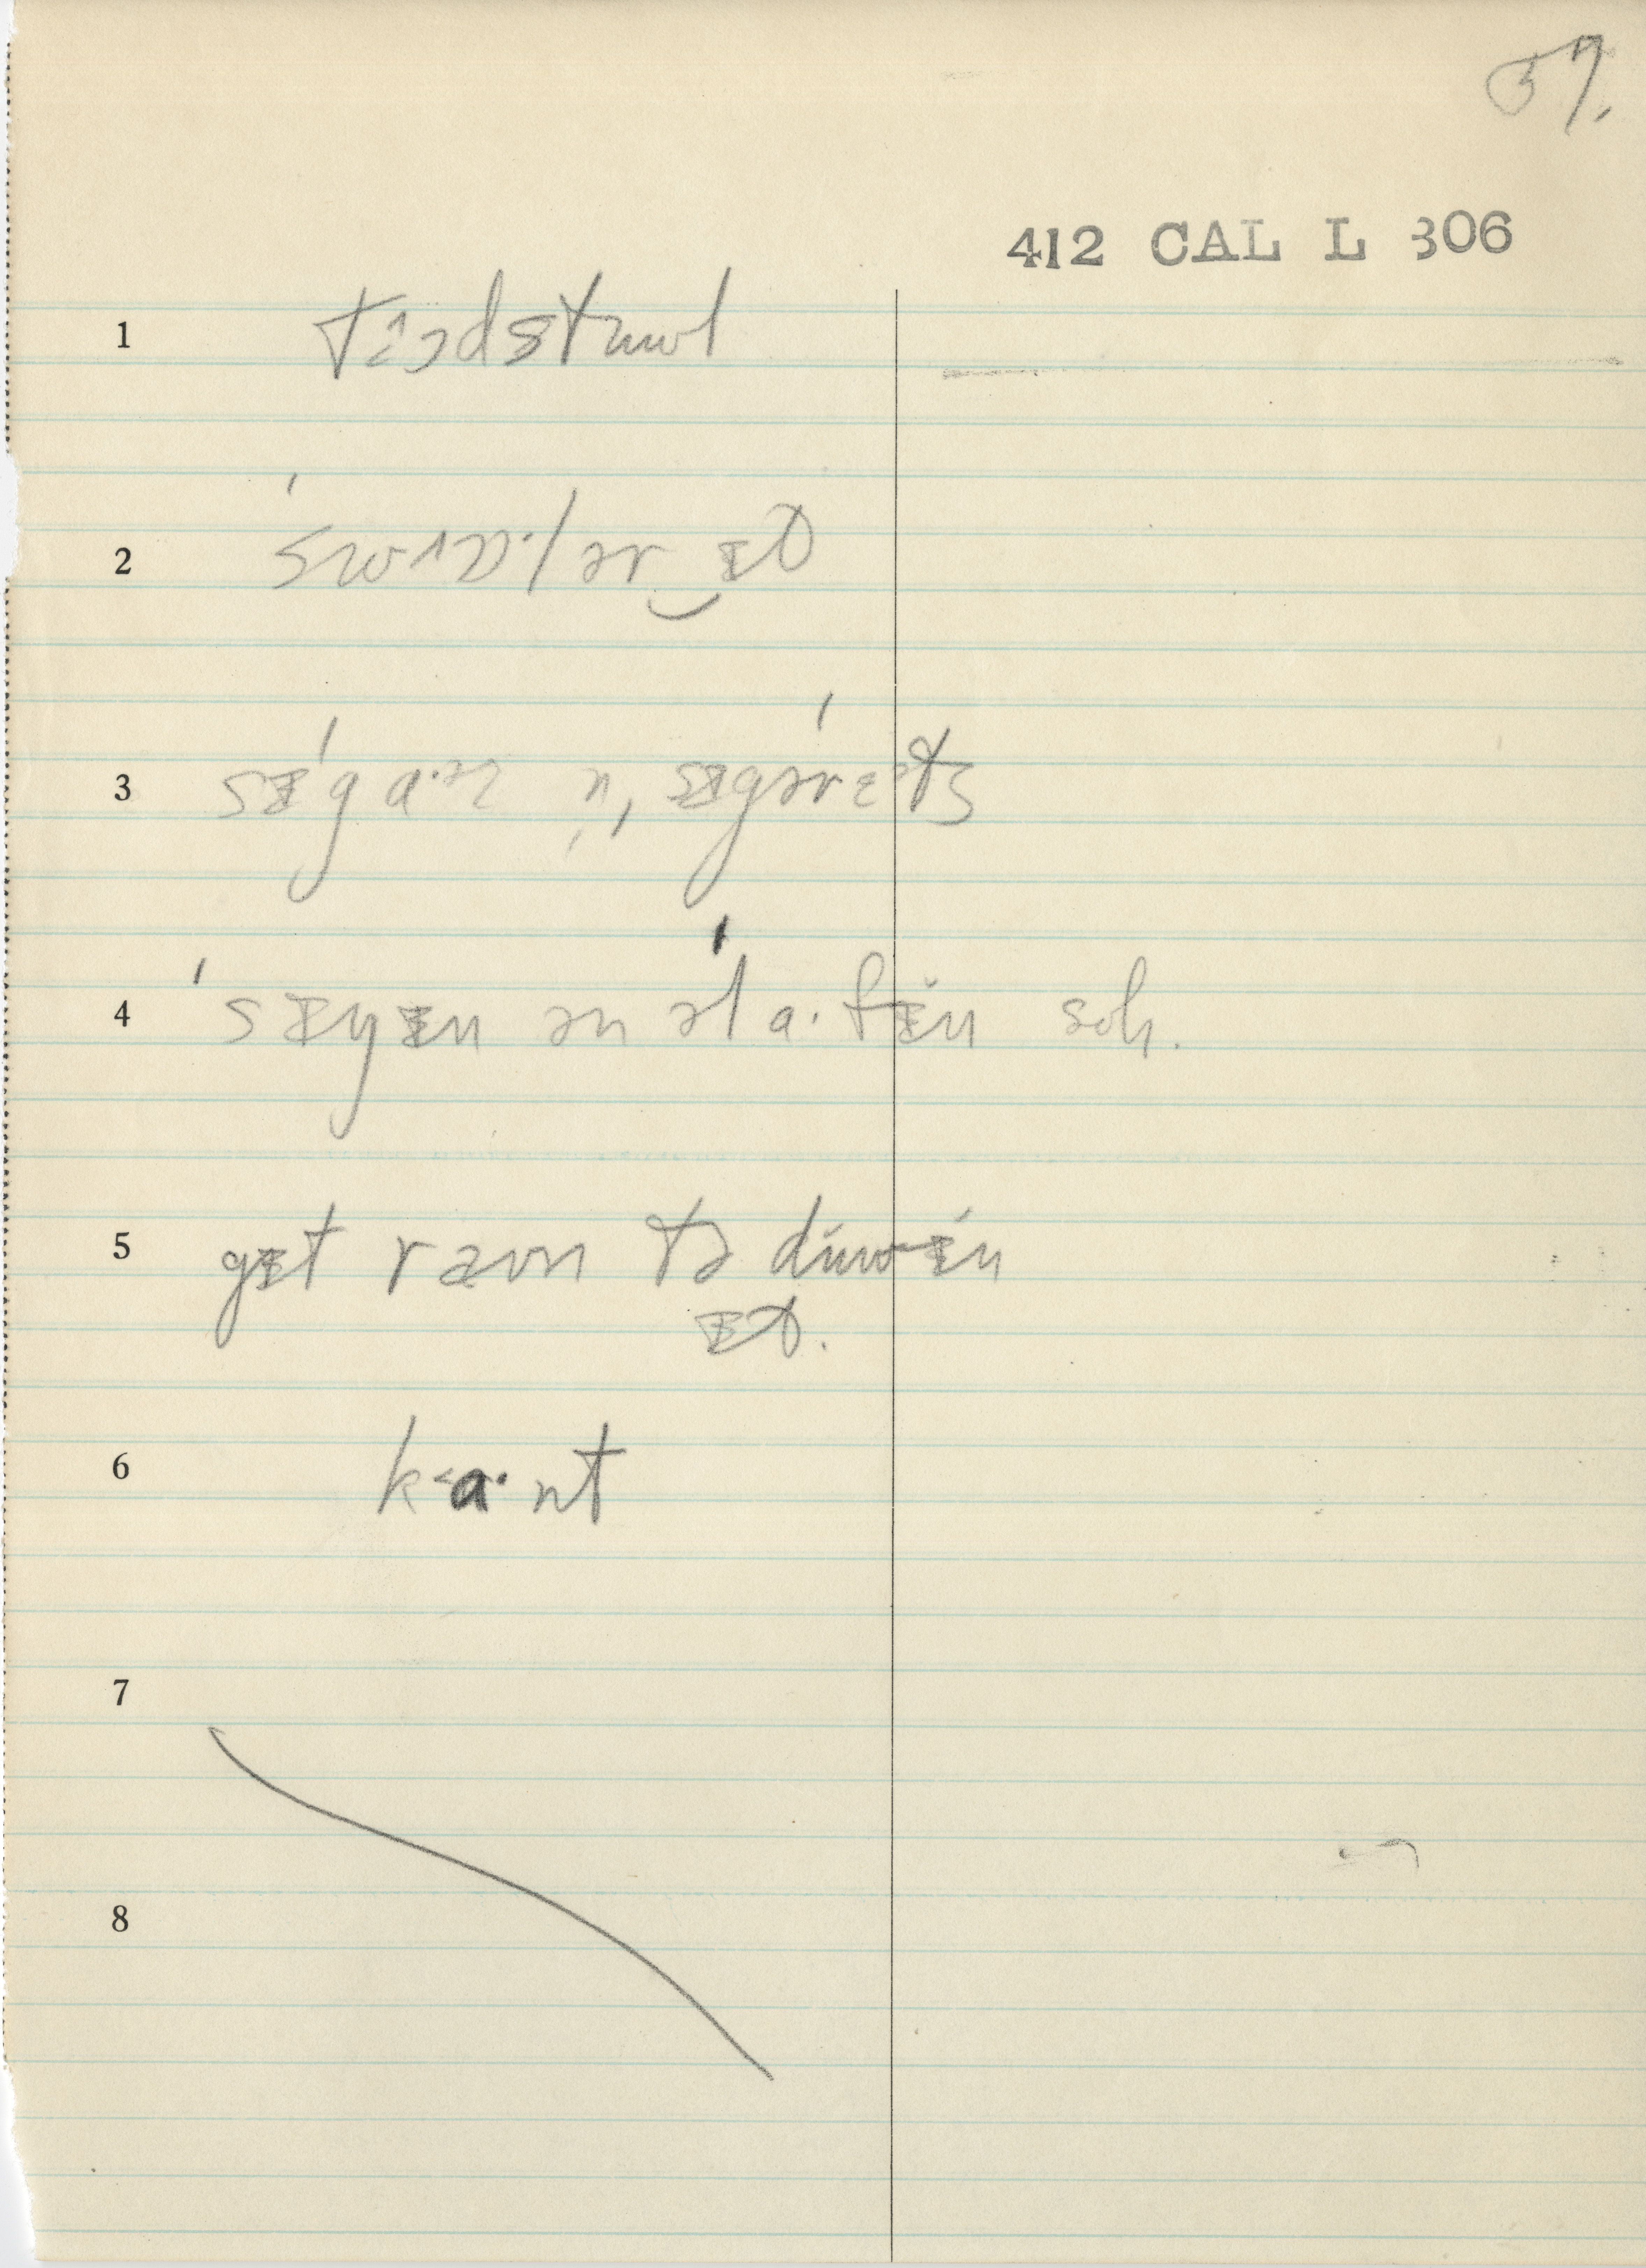 57.
412 CAL L 306
1 tɨɔdstuwl
2 ˈswɒlər‿ɪt
3 sɪgáɚz n̩, sɪgərɛ́ts
4 ˈsɪŋɪn ən əˈla·fɪn soʊ.
5 gɪt raʊn tə duw-ɪn
ɪt.
6 k<a·nt
7
8